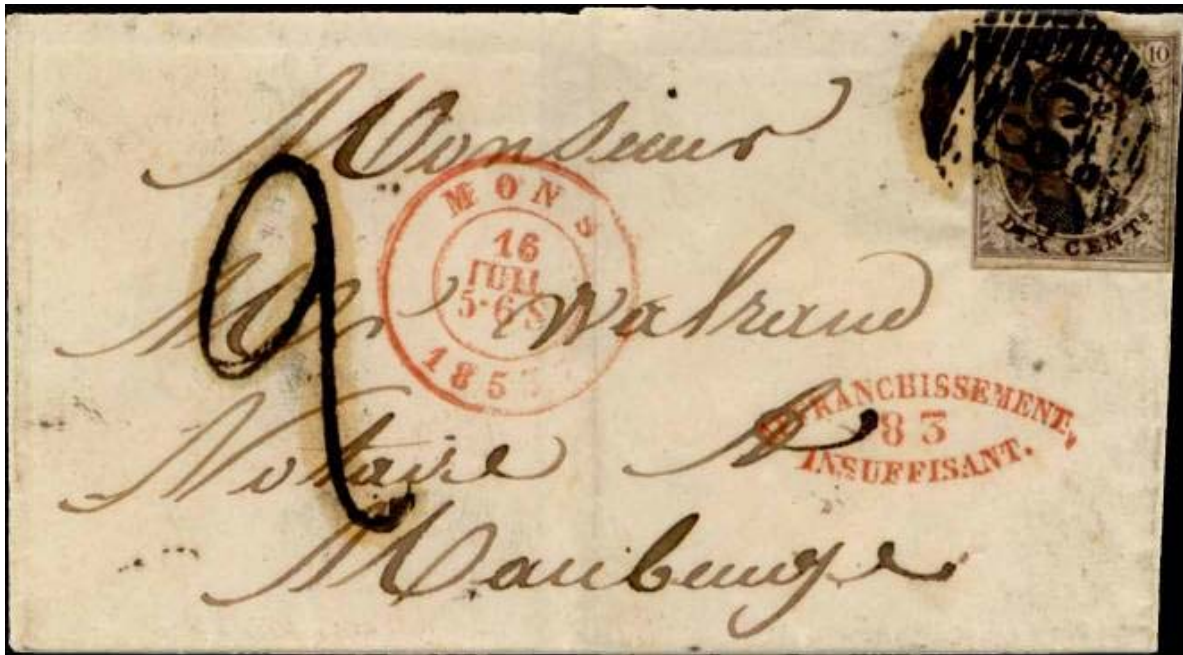 Monsieur
10
DIX CENTS
83
MONS
16
JUIL
5-6 S
185
2
Mr Walrand
AFFRANCHISSEMENT
83
INSUFFISANT.
Notaire A
Maubeuge